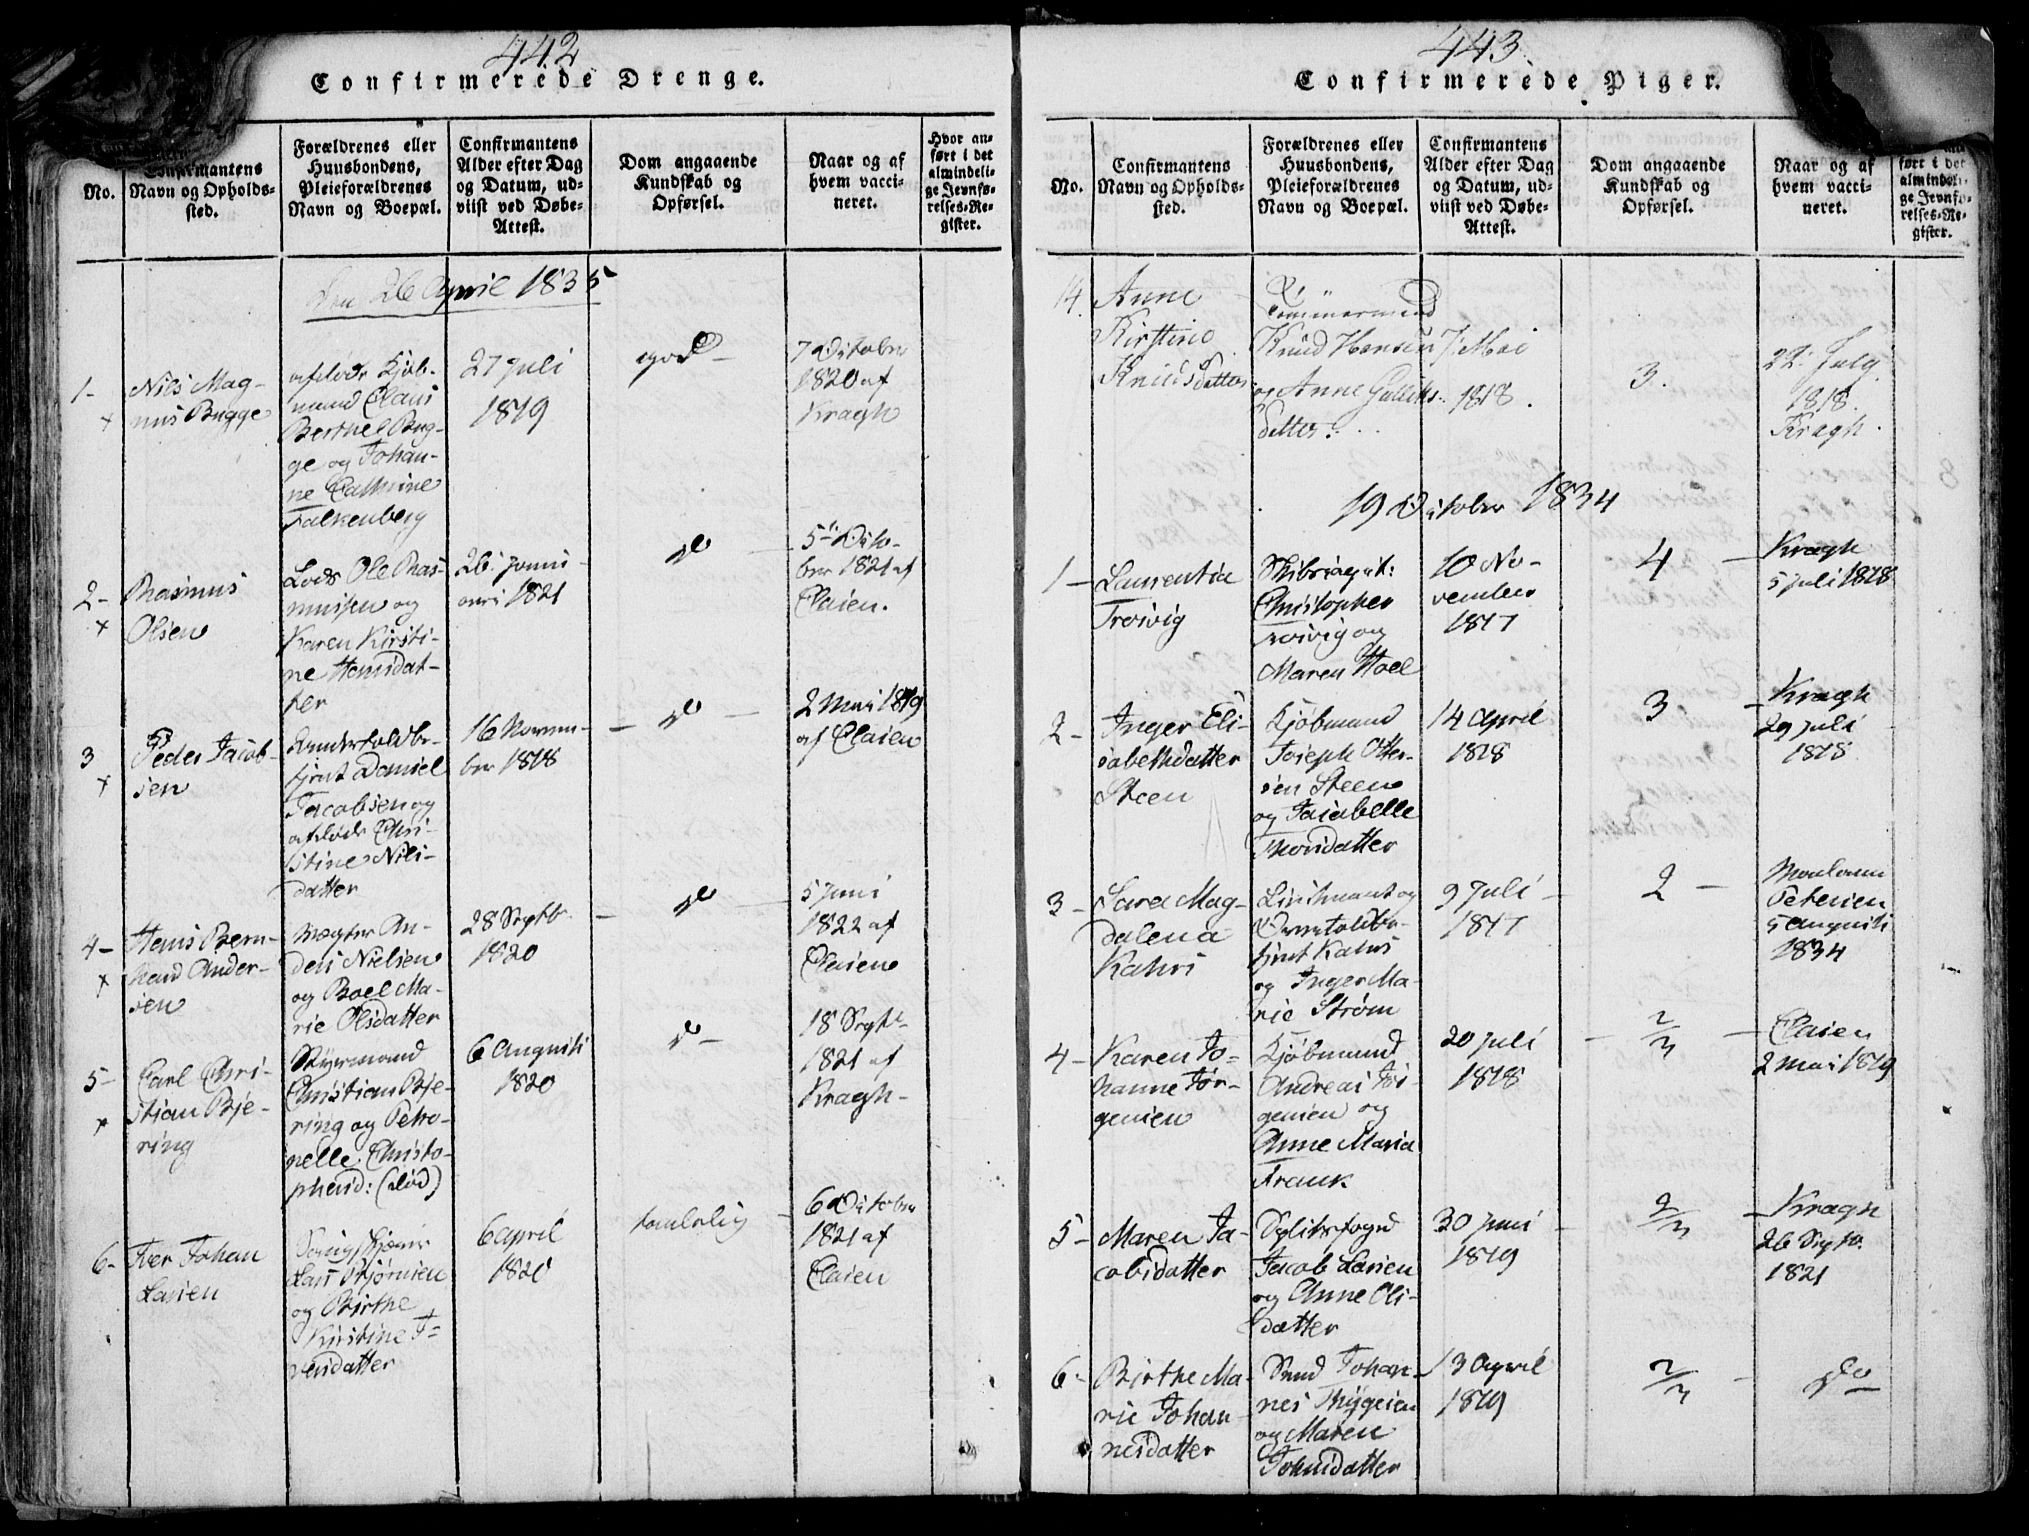 442
Confirmerede Drenge.
No.
Confirmantens
Navn og Opholds-
sted.
Forældrenes eller
Huusbondens,
Pleieforældrenes
Navn og Boepæl.
Confirmantens
Alder efter Dag
og Datum, ud-
viist ved Døbe-
Attest.
Dom angaaende
Kundskab og
Opførsel.
Naar og af
hvem vacci-
neret.
Hvor an-
ført i det
almindeli-
ge Jevnfø-
relses-Re-
gister.
den 26 April 1835
1-
Nils Mag-
nus Bugge
afdøde Kjøb-
mand Claus
Berthel Bug-
ge og Johan-
ne Cathrine
Falkenberg
27 Juli
1819
god
7 October
1820 af
Kragh
2-
Rasmus
Olsen
Lods Ole Ras-
mussen og
Karen Kirsti-
ne Hansdat-
ter
26 Janu-
ari 1821
do
5 Octo-
ber 1821 af
Claien.
3
Peder Jacob-
sen
Daniel
Jacobsen og
afdøde Chri-
stine Nils-
datter
16 Novem-
ber 1818
do
2 Mai 1819
af Claien
4-
Hans Bern-
hard Ander-
sen
Vægter An-
ders Nielsen
og Boel Ma-
rie Olsdatter
28 Septb.
1820
do
5 Juni
1822 af
Claien
5-
Carl Chri-
stian Bje-
ring
Styrmand
Christian Bje-
ring og Petro-
nelle Christo-
phersd: (død)
6 Augusti
1820
do
18 Septe-
1821 af
Kragh-
6-
Iver Johan
Larsen
Lars Bjørnsen
og Birthe
Kirstine I-
versdatter
6 April
1820
temlelig
6 October
1821 af
Claien
443.
Confirmerede Piger.
No.
Confirmantens
Navn og Opholds-
sted.
Forældrenes eller
Huusbondens,
Pleieforældrenes
Navn og Boepæl.
Confirmantens
Alder efter Dag
og Datum, ud-
viist ved Døbe-
Attest.
Dom angaaende
Kundskab og
Opførsel.
Naar og af
hvem vacci-
neret.
ført i det
almindeli-
ge Jevnfø-
relses-Re-
gister.
14.
Anne
Kirstine
Knudsdatter
Tömmermand
Knud Hansen
og Anne Gulliks-
datter.
7 Mai
1818.
3.
22. July
1818.
Kragh.
19 October 1834
1-
Laurentia
Trovig
Skibscapt:
Christopher
Trovig og
Maren Hoel
10 No-
vember
1817
4
Kragh
5 Juli 1818
2-
Inger Eli-
sabethdatter
Steen
Kjøbmand
Joseph Otter-
sen Steen
og Isabelle
Thorsdatter
14 April
1818
3
Kragh
29 Juli
1818
3-
Sara Mag-
dalena
Kahrs
Lieutnant og
Kahrs
og Inger Ma-
rie Strøm
9 Juli
1817
2
Petersen
5 Augusti
1834
4-
Karen Jo-
hanne Jør-
gensen
Kjøbmand
Andreas Jør-
gensen og
Anne Maria
Frank
20 Juli
1818
2/3
Claien
2 Mai 1819
5-
Maren Ja-
cobsdatter
Splitsfoged
Jacob Larsen
og Anne Ols-
datter
30 Juni
1819
2/3
Kragh
26 Septb.
1821
6-
Birthe Ma-
rie Johan-
nesdatter
Smed Johan-
nes Thygesen
og Maren
Johnsdatter
13 April
1819
2/3
do